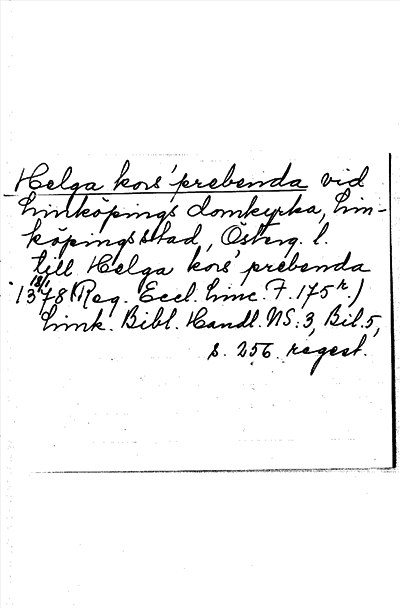 Helga kors' prebenda vid
Linköpings domkyrka, Lin-
köpings stad, Österg. l.
till Helga kors' prebenda
18/1
1378 (Reg. Eccl. Linc. F. 175 r)
Link. Bibl. Handl. NS: 3, Bil. 5,
s. 256. regest.